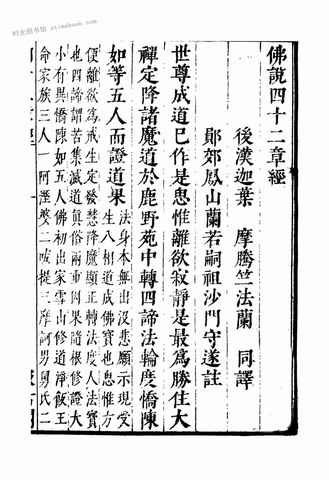 佛說四十二章經
後漢迦葉　摩騰竺法蘭　同譯
郢郊鳳山蘭若嗣祖沙門守遂註
世尊成道已作是思惟離欲寂靜是最爲勝住大
禪定降諸魔道於鹿野苑中轉四諦法輪度憍陳
如等五人而證道果
法身本無出沒悲願示現受
生八相道成佛寶也思惟方
便離欲爲戒生定發慧降魔顯正轉法度人法寶
也四諦謂苦集滅道真俗兩重因果隨根修證大
小有異憍陳如五人佛初出家雪山修道淨飯王
命家族三人一阿溼婆二跋提三摩訶男舅氏二